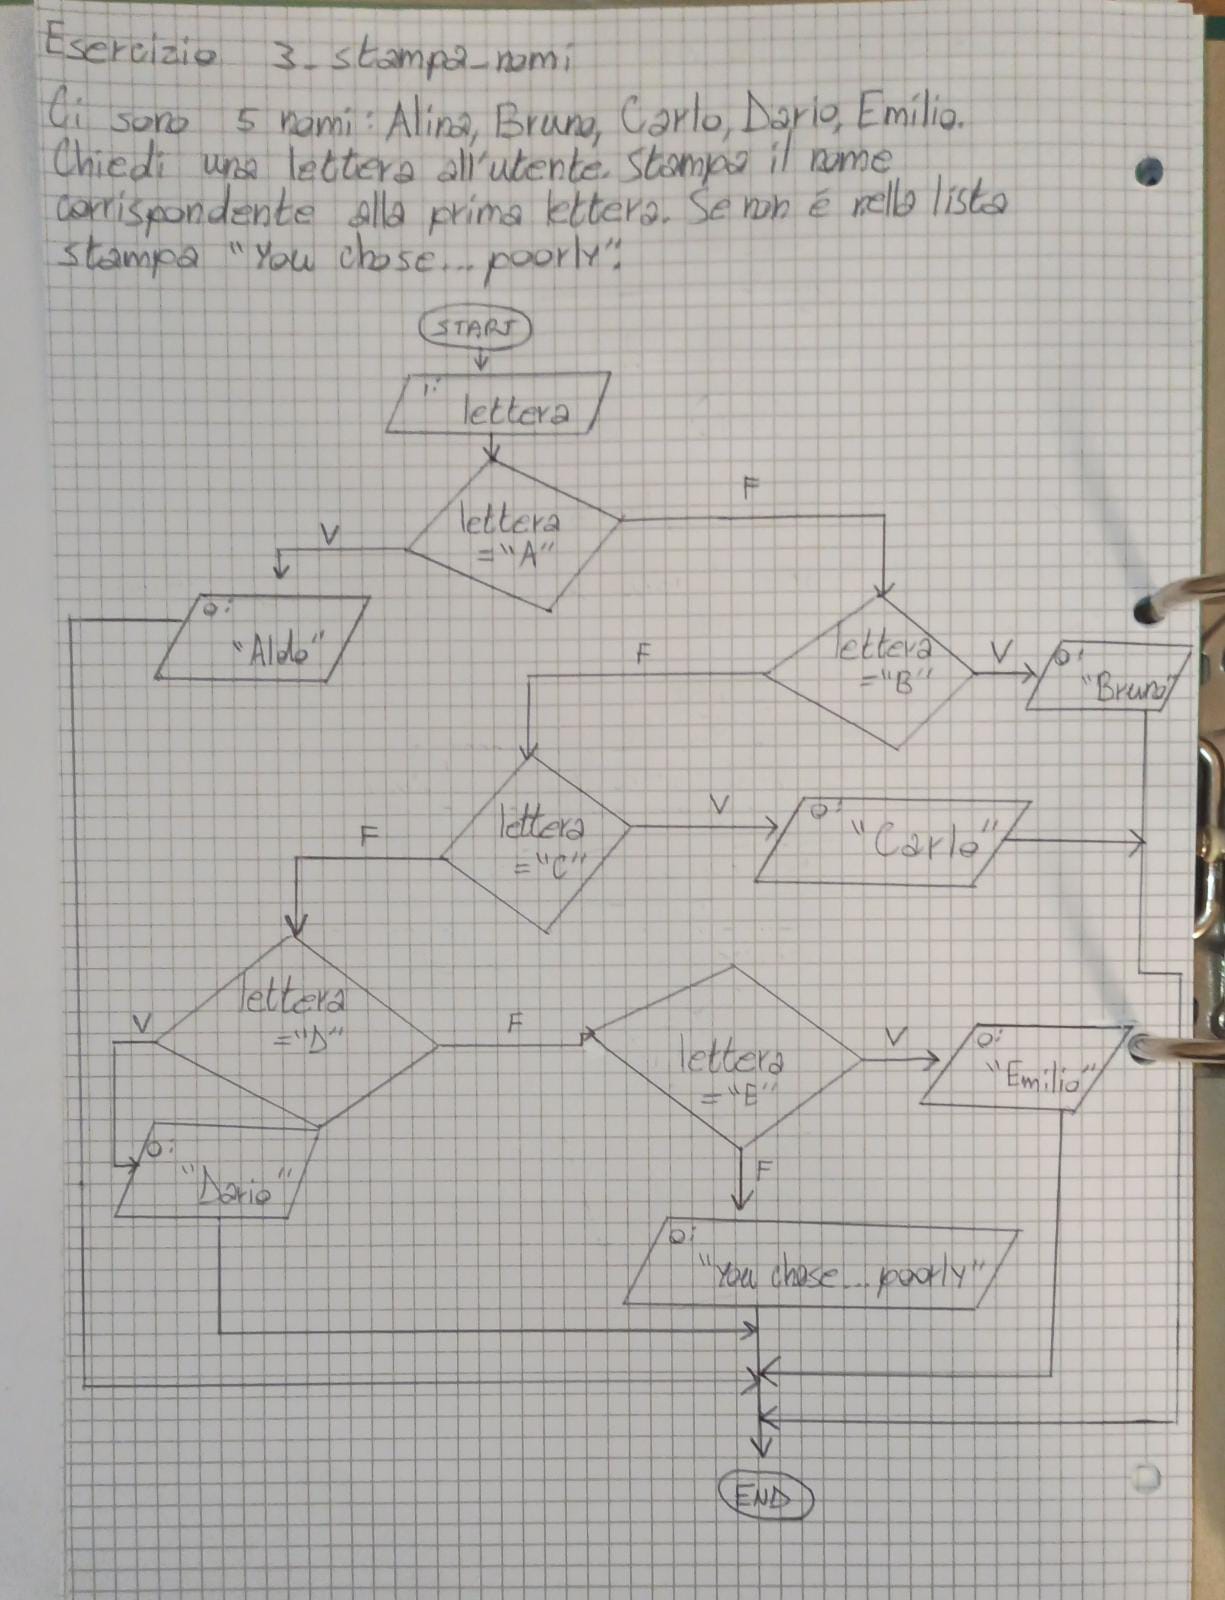 Esercizio 3_stampa_nomi
Ci sono 5 nomi: Alina, Bruno, Carlo, Dario, Emilio.
Chiedi una lettera all'utente. Stampa il nome
corrispondente alla prima lettera. Se non è nella lista
stampa "You chose... poorly".
START
i:
lettera
lettera
="A"
V
F
o:
"Aldo"
lettera
="B"
F
V
o:
"Bruno"
lettera
="C"
F
V
o:
"Carlo"
lettera
="D"
V
F
o:
"Dario"
lettera
="E"
V
o:
"Emilio"
F
o:
"You chose... poorly"
END